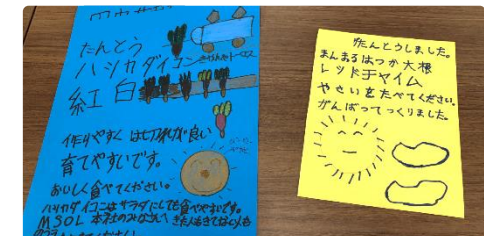 たんとう
ハツカダイコン
紅白
作りやすく はごたえが良い
育てやすいです。
おいしく食べてください。
ハツカダイコンはサラダにしても食べやすいです。
MSOL 本社のみなさん
たんとうしました。
まんまるはつか大根
レッドチャイム
やさいをたべてください。
がんばってつくりました。